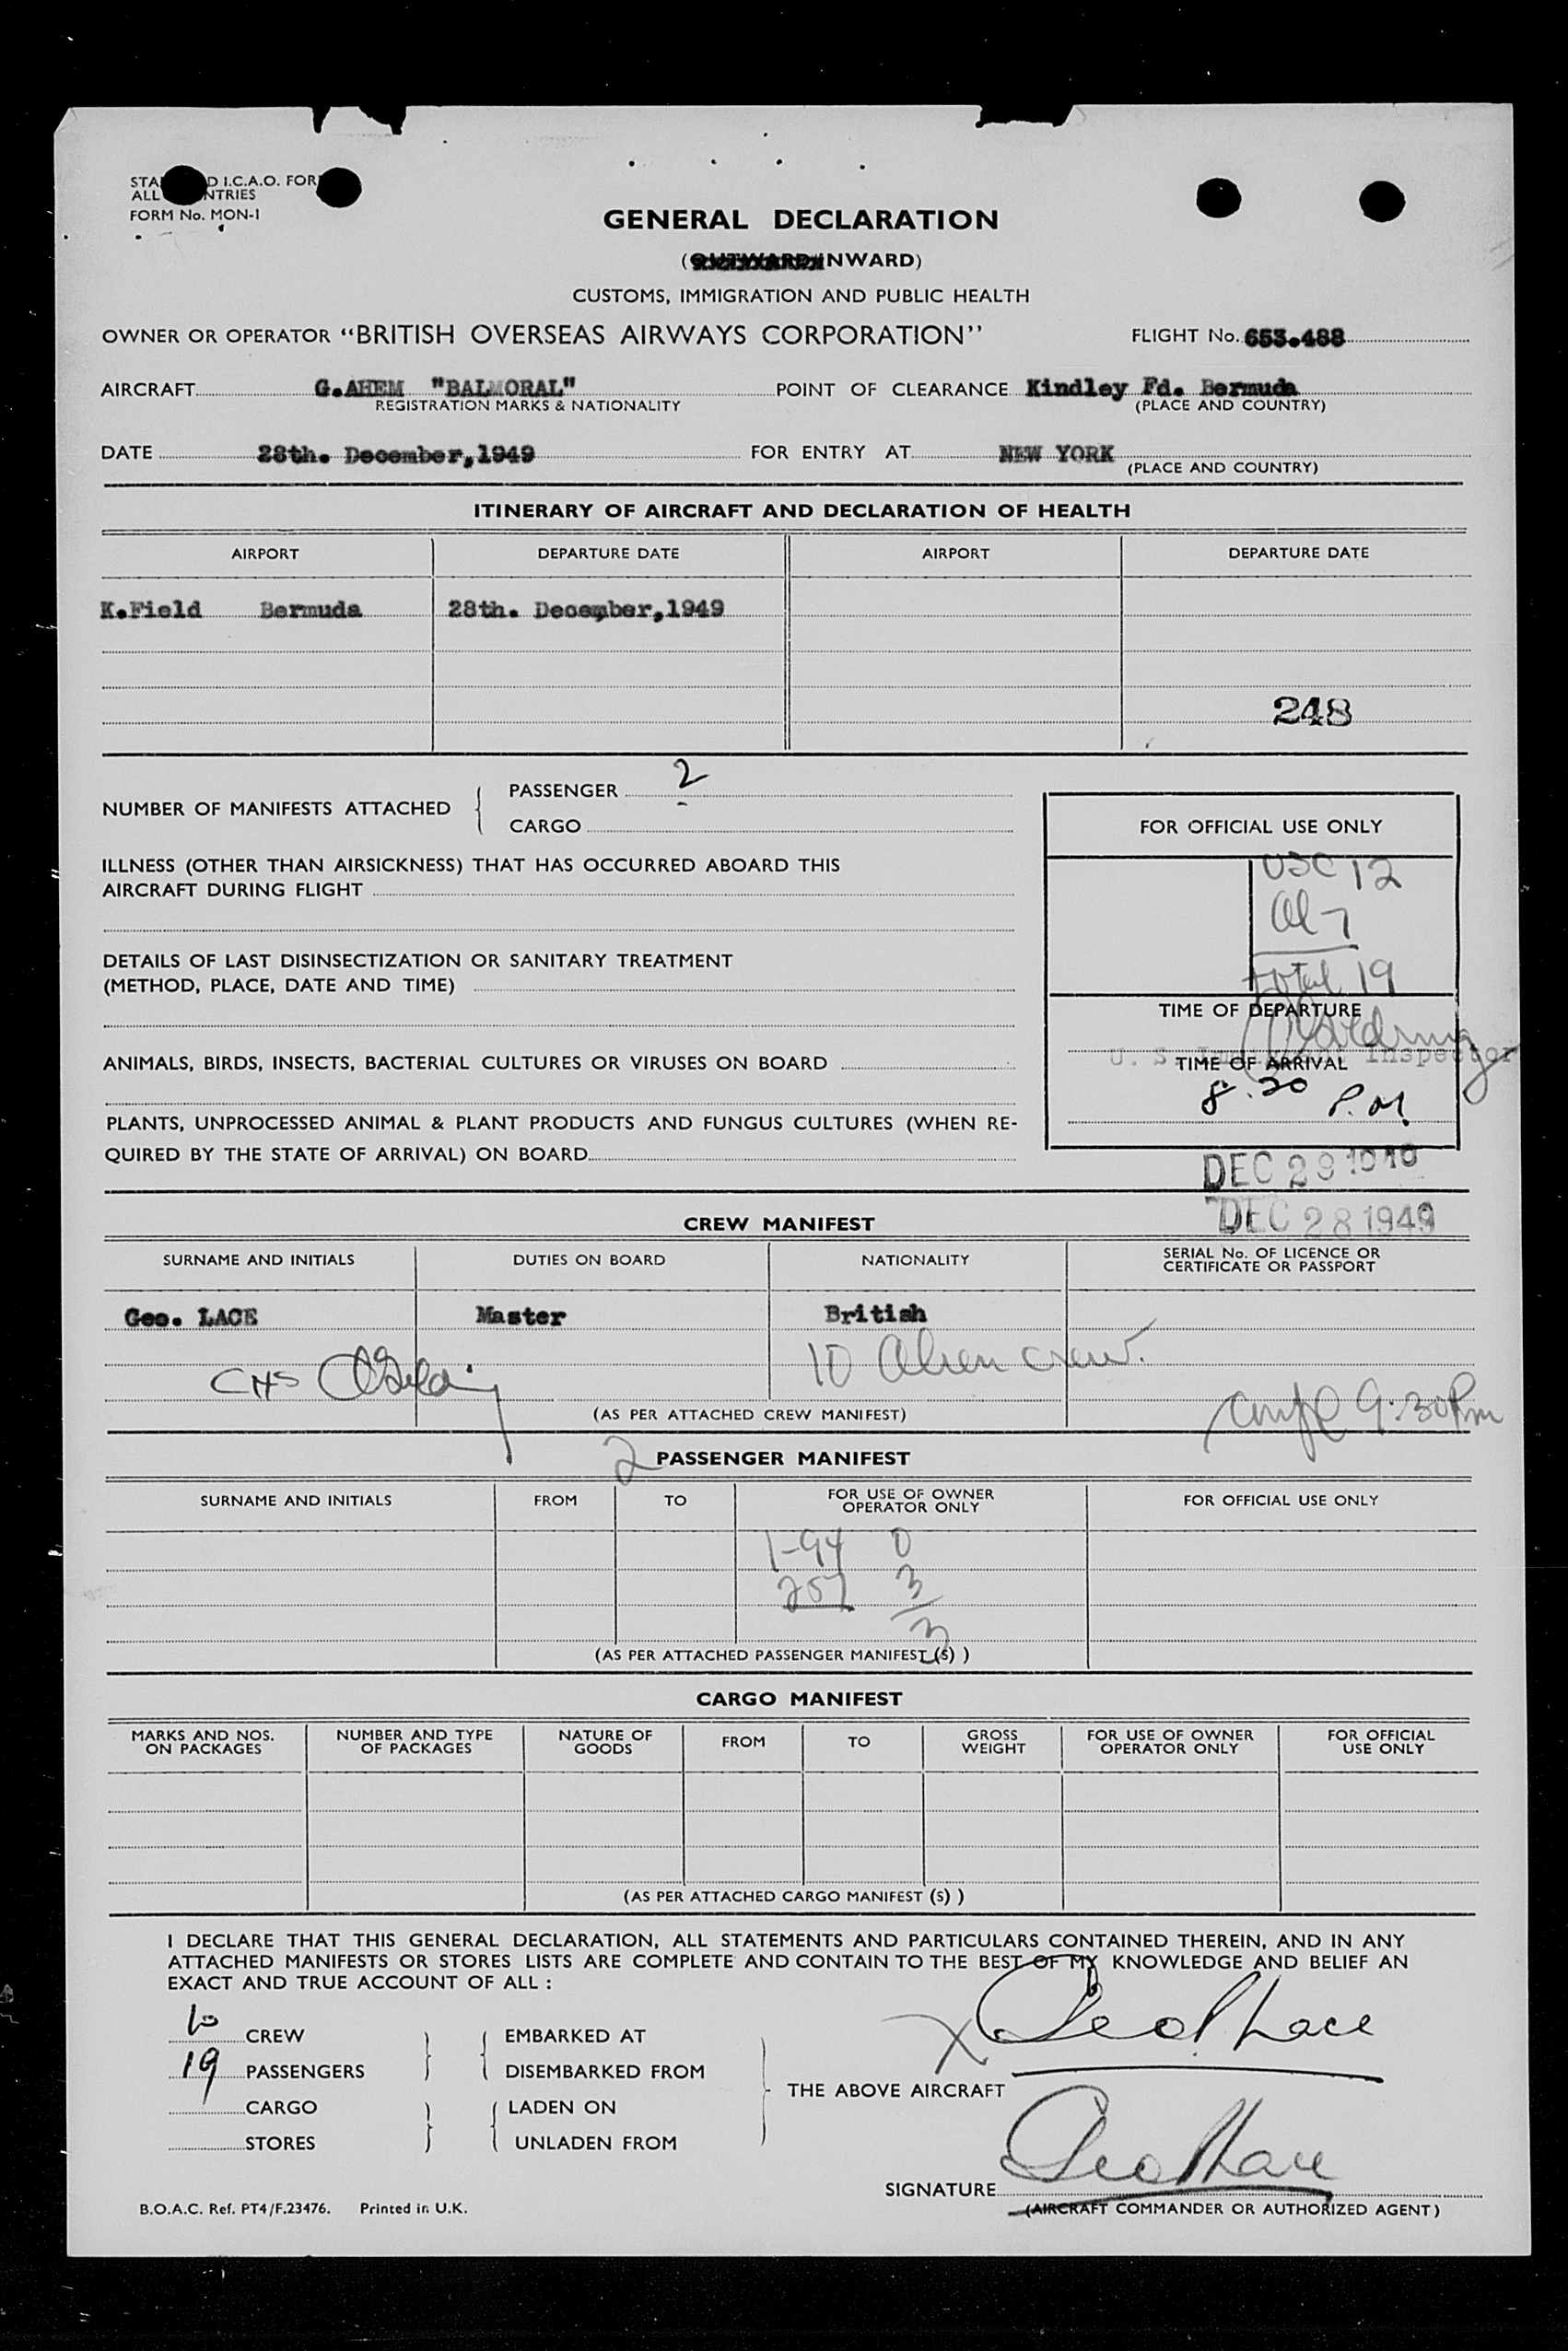 STA D I.C.A.O. FOR
ALL NTRIES
FORM No. MON-I
GENERAL DECLARATION
(OUTWARD/INWARD)
CUSTOMS, IMMIGRATION AND PUBLIC HEALTH
OWNER OR OPERATOR "BRITISH OVERSEAS AIRWAYS CORPORATION" FLIGHT No. 653.488
AIRCRAFT G.AHEM "BALMORAL" POINT OF CLEARANCE Kindley Fd. Bermuda
REGISTRATION MARKS & NATIONALITY (PLACE AND COUNTRY)
DATE 28th. December,1949 FOR ENTRY AT NEW YORK
(PLACE AND COUNTRY)
ITINERARY OF AIRCRAFT AND DECLARATION OF HEALTH
AIRPORT DEPARTURE DATE AIRPORT DEPARTURE DATE
K.Field Bermuda 28th. December,1949
248
NUMBER OF MANIFESTS ATTACHED { PASSENGER 2
CARGO
ILLNESS (OTHER THAN AIRSICKNESS) THAT HAS OCCURRED ABOARD THIS
AIRCRAFT DURING FLIGHT
DETAILS OF LAST DISINSECTIZATION OR SANITARY TREATMENT
(METHOD, PLACE, DATE AND TIME)
ANIMALS, BIRDS, INSECTS, BACTERIAL CULTURES OR VIRUSES ON BOARD
PLANTS, UNPROCESSED ANIMAL & PLANT PRODUCTS AND FUNGUS CULTURES (WHEN RE-
QUIRED BY THE STATE OF ARRIVAL) ON BOARD
FOR OFFICIAL USE ONLY
USC 12
Al 7
Total 19
TIME OF DEPARTURE
U. S. Immigrant Inspector
TIME OF ARRIVAL
8.20 P.M.
DEC 29 1949
DEC 28 1949
CREW MANIFEST
SURNAME AND INITIALS DUTIES ON BOARD NATIONALITY SERIAL No. OF LICENCE OR
CERTIFICATE OR PASSPORT
Geo. LACE Master British
10 Alien crew.
CHS
(AS PER ATTACHED CREW MANIFEST)
Compl 9:30 Pm
2 PASSENGER MANIFEST
SURNAME AND INITIALS FROM TO FOR USE OF OWNER
OPERATOR ONLY FOR OFFICIAL USE ONLY
I-94 0
257 3
3
(AS PER ATTACHED PASSENGER MANIFEST (S) )
CARGO MANIFEST
MARKS AND NOS.
ON PACKAGES NUMBER AND TYPE
OF PACKAGES NATURE OF
GOODS FROM TO GROSS
WEIGHT FOR USE OF OWNER
OPERATOR ONLY FOR OFFICIAL
USE ONLY
(AS PER ATTACHED CARGO MANIFEST (S) )
I DECLARE THAT THIS GENERAL DECLARATION, ALL STATEMENTS AND PARTICULARS CONTAINED THEREIN, AND IN ANY
ATTACHED MANIFESTS OR STORES LISTS ARE COMPLETE AND CONTAIN TO THE BEST OF MY KNOWLEDGE AND BELIEF AN
EXACT AND TRUE ACCOUNT OF ALL :
10 CREW } { EMBARKED AT
19 PASSENGERS DISEMBARKED FROM
CARGO } { LADEN ON
STORES UNLADEN FROM
} THE ABOVE AIRCRAFT
X Geo Lace
SIGNATURE Geo Lace
(AIRCRAFT COMMANDER OR AUTHORIZED AGENT)
B.O.A.C. Ref. PT4/F.23476. Printed in U.K.